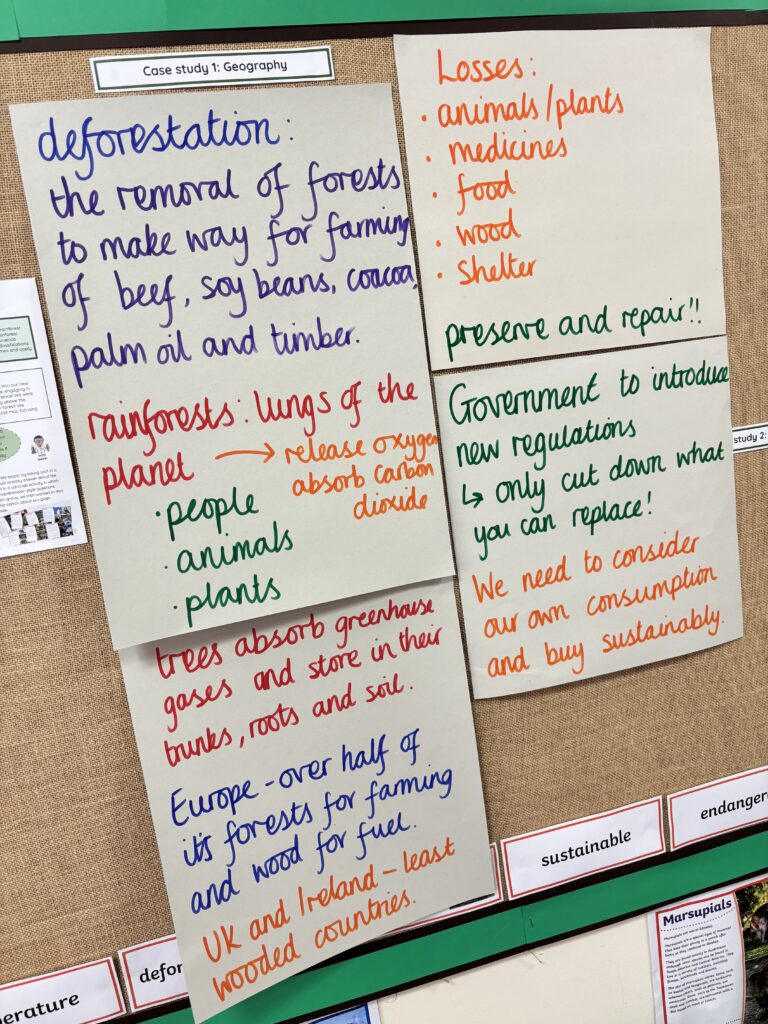 Case study 1: Geography
deforestation:
the removal of forests
to make way for farming
of beef, soy beans, coacoa,
palm oil and timber.
rainforests: lungs of the
planet → release oxygen
absorb carbon
dioxide
· people
· animals
· plants
trees absorb greenhouse
gases and store in their
trunks, roots and soil.
Europe - over half of
it's forests for farming
and wood for fuel.
UK and Ireland - least
wooded countries.
Losses:
· animals/plants
· medicines
· food
· wood
· shelter
preserve and repair!!
Government to introduce
new regulations
↳ only cut down what
you can replace!
We need to consider
our own consumption
and buy sustainably.
study 2:
erature
defor
sustainable
endanger
Marsupials